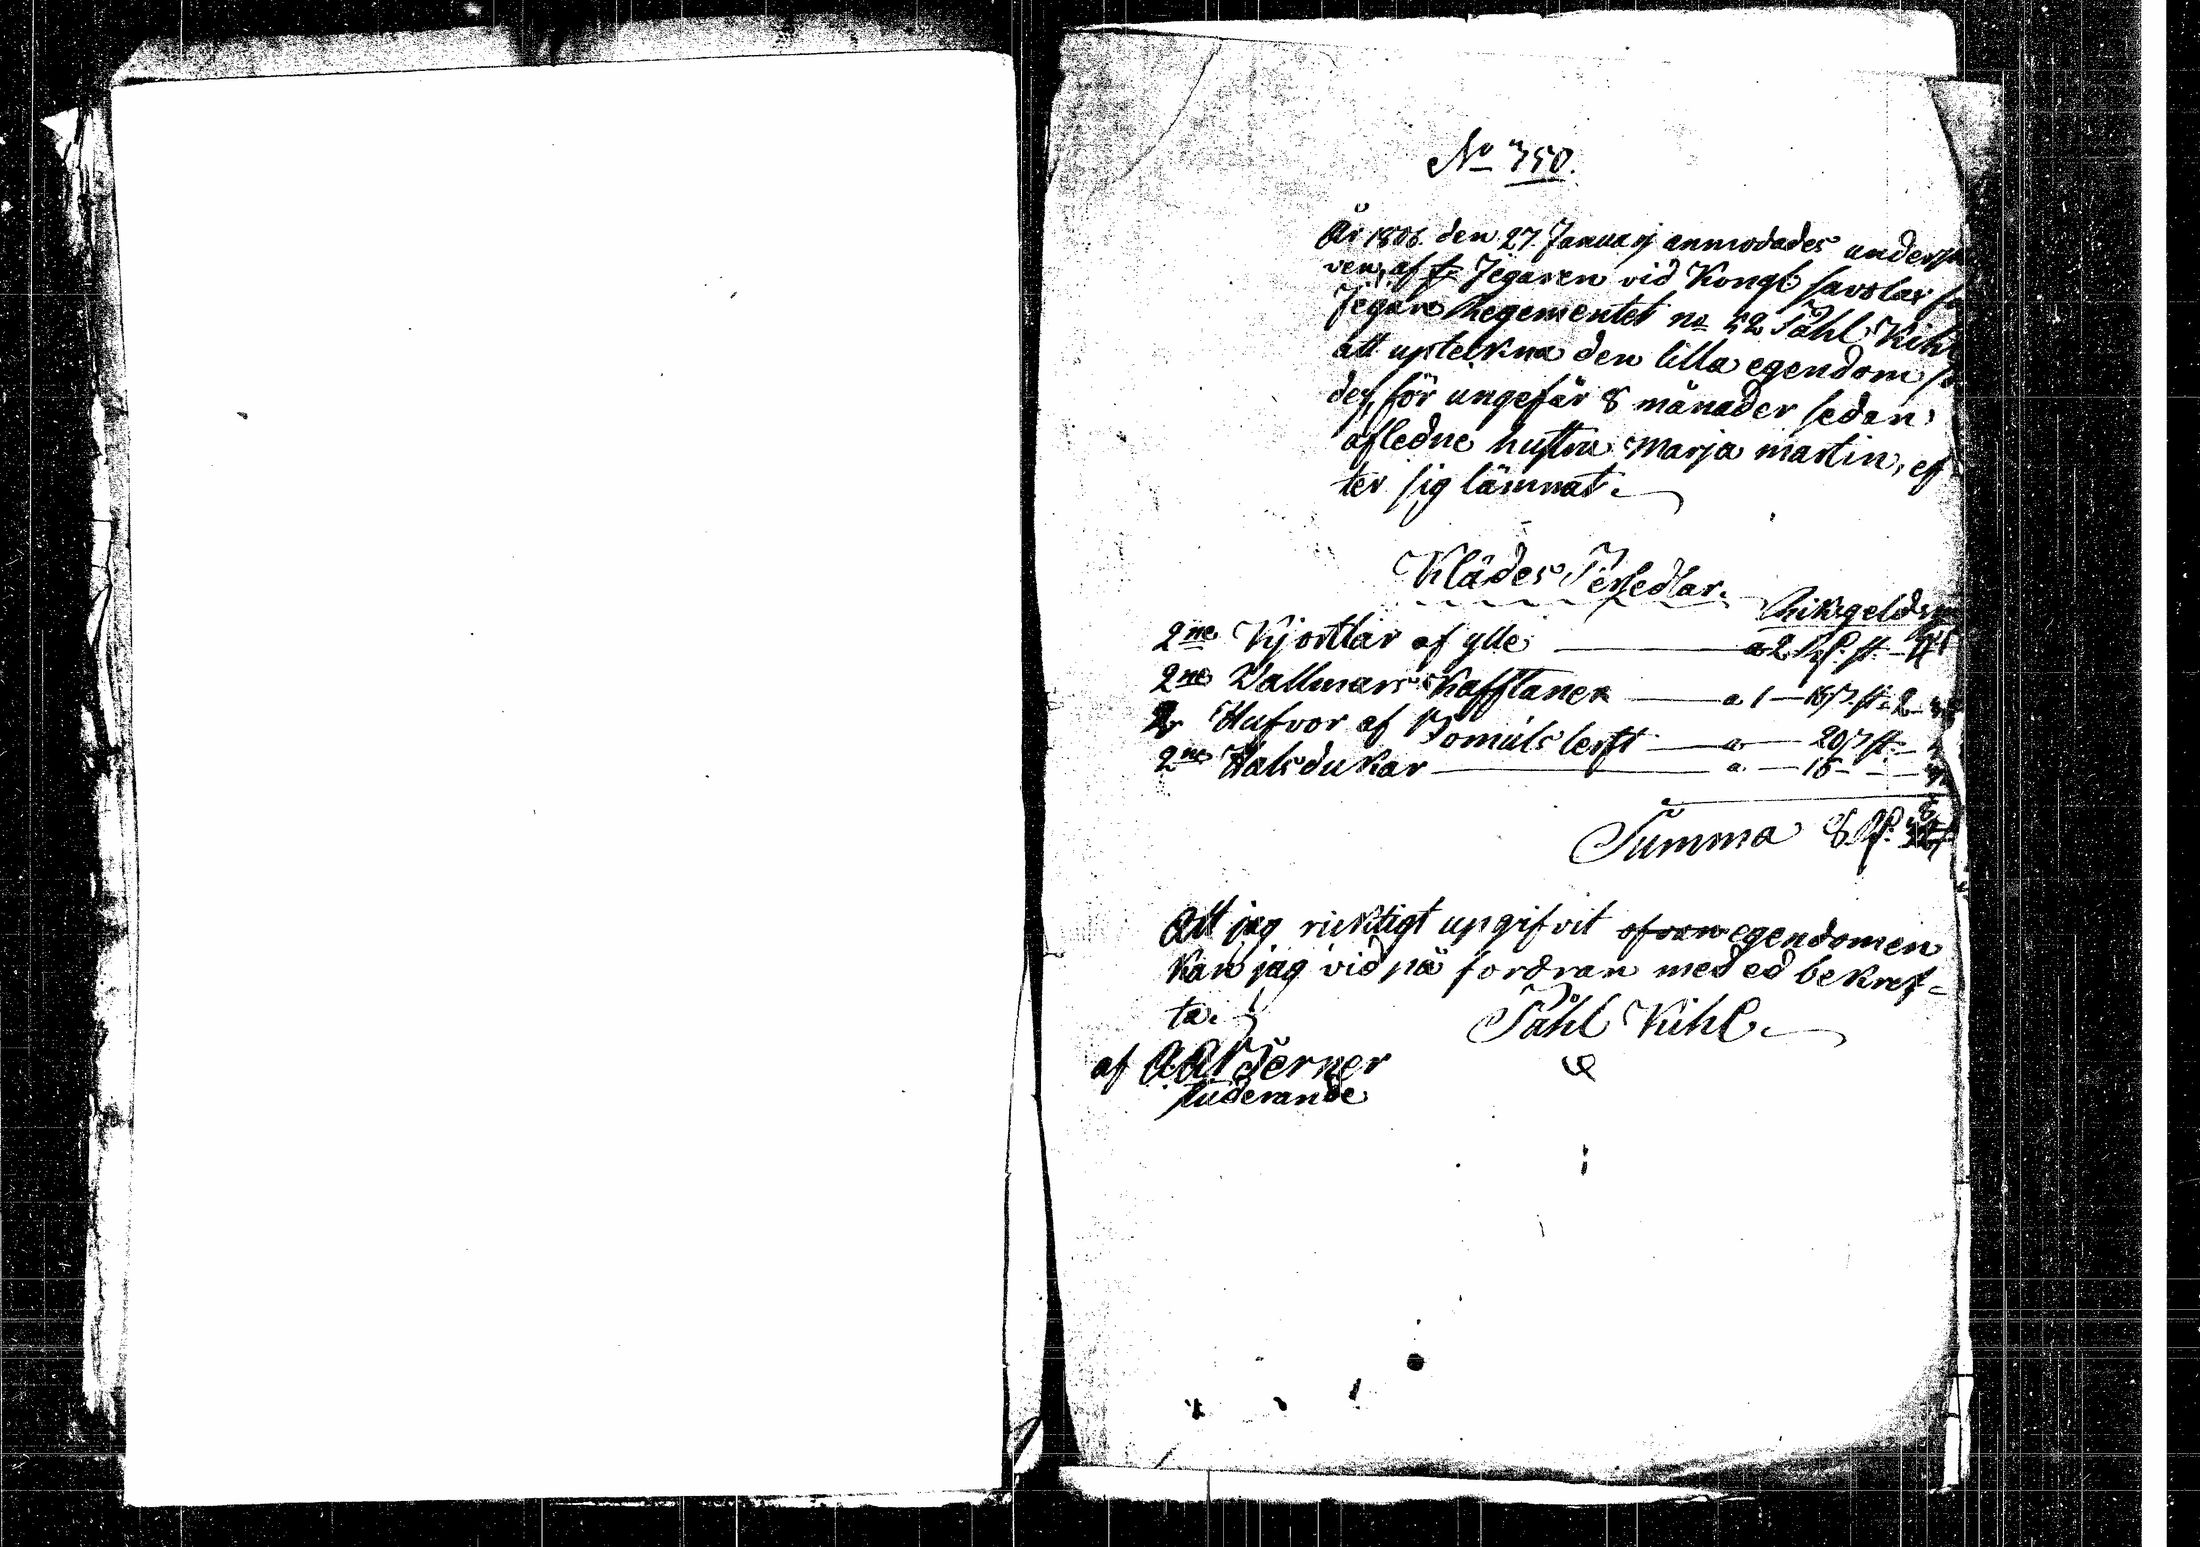 No 350.
År 1806. den 27. Januarij anmodades
ven, af f. Jegaren vid Kongl: savolax
Jegare Regementet no 52 Påhl Kihl
att upteckna den lilla egendom
des, för ungefär 8 månader sedan
afledne hustru Marja martin, ef-
ter sig lämnat.
Klädes Persedlar.
2ne Kjortlar af ylle a 2 Rd. st.
2ne Vallmars Kafftaner a 1 — 16 s. st. 2
2 Hufvor af Bomuls lerft a — 20 s st.
2ne Halsdukar a. — 16
Summa 8 Rd.
Att jag ricktigt upgifvit ofvan egendomen
kan jag vid på fordran med ed bekref-
ta. Påhl Kihl.
af A A Werner
studerande